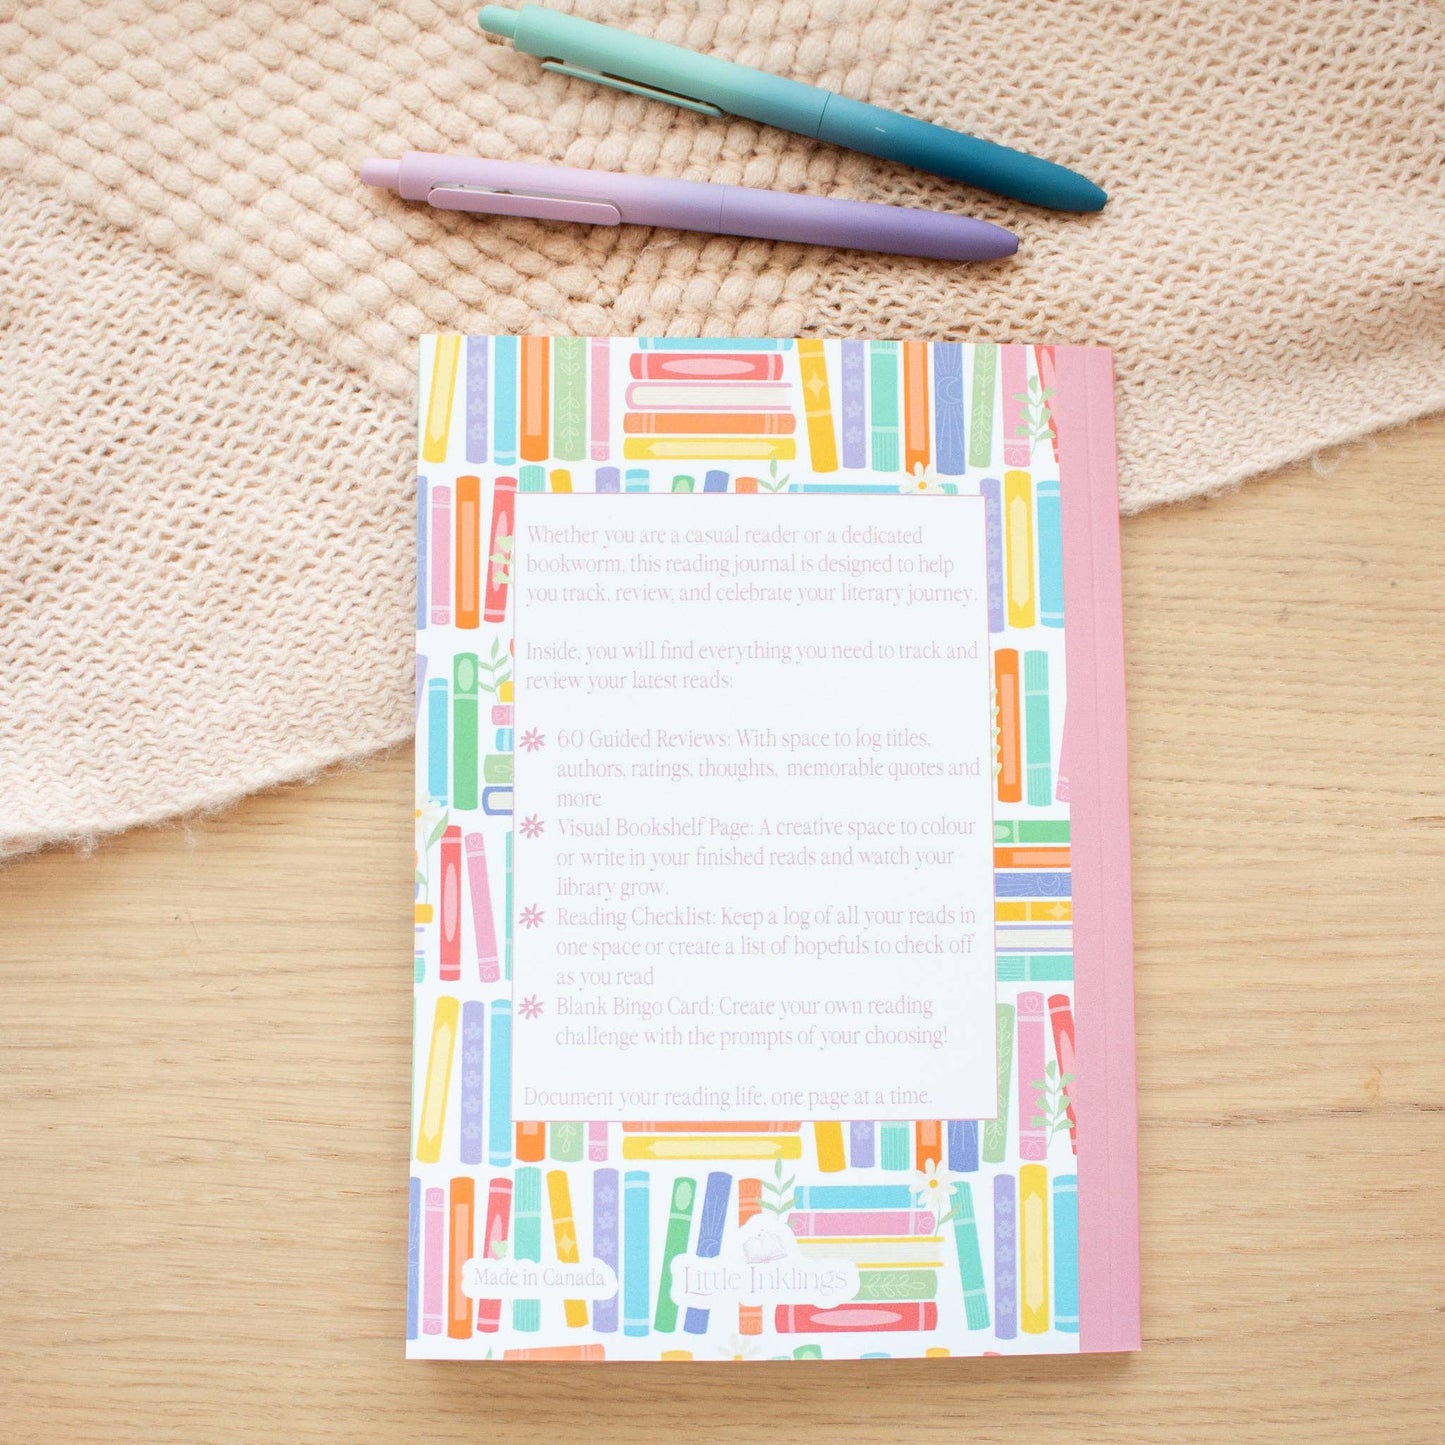 Whether you are a casual reader or a dedicated
bookworm, this reading journal is designed to help
you track, review, and celebrate your literary journey.
Inside, you will find everything you need to track and
review your latest reads:
60 Guided Reviews: With space to log titles,
authors, ratings, thoughts, memorable quotes and
more
Visual Bookshelf Page: A creative space to colour
or write in your finished reads and watch your
library grow.
Reading Checklist: Keep a log of all your reads in
one space or create a list of hopefuls to check off
as you read
Blank Bingo Card: Create your own reading
challenge with the prompts of your choosing!
Document your reading life, one page at a time.
Made in Canada
Little Inklings